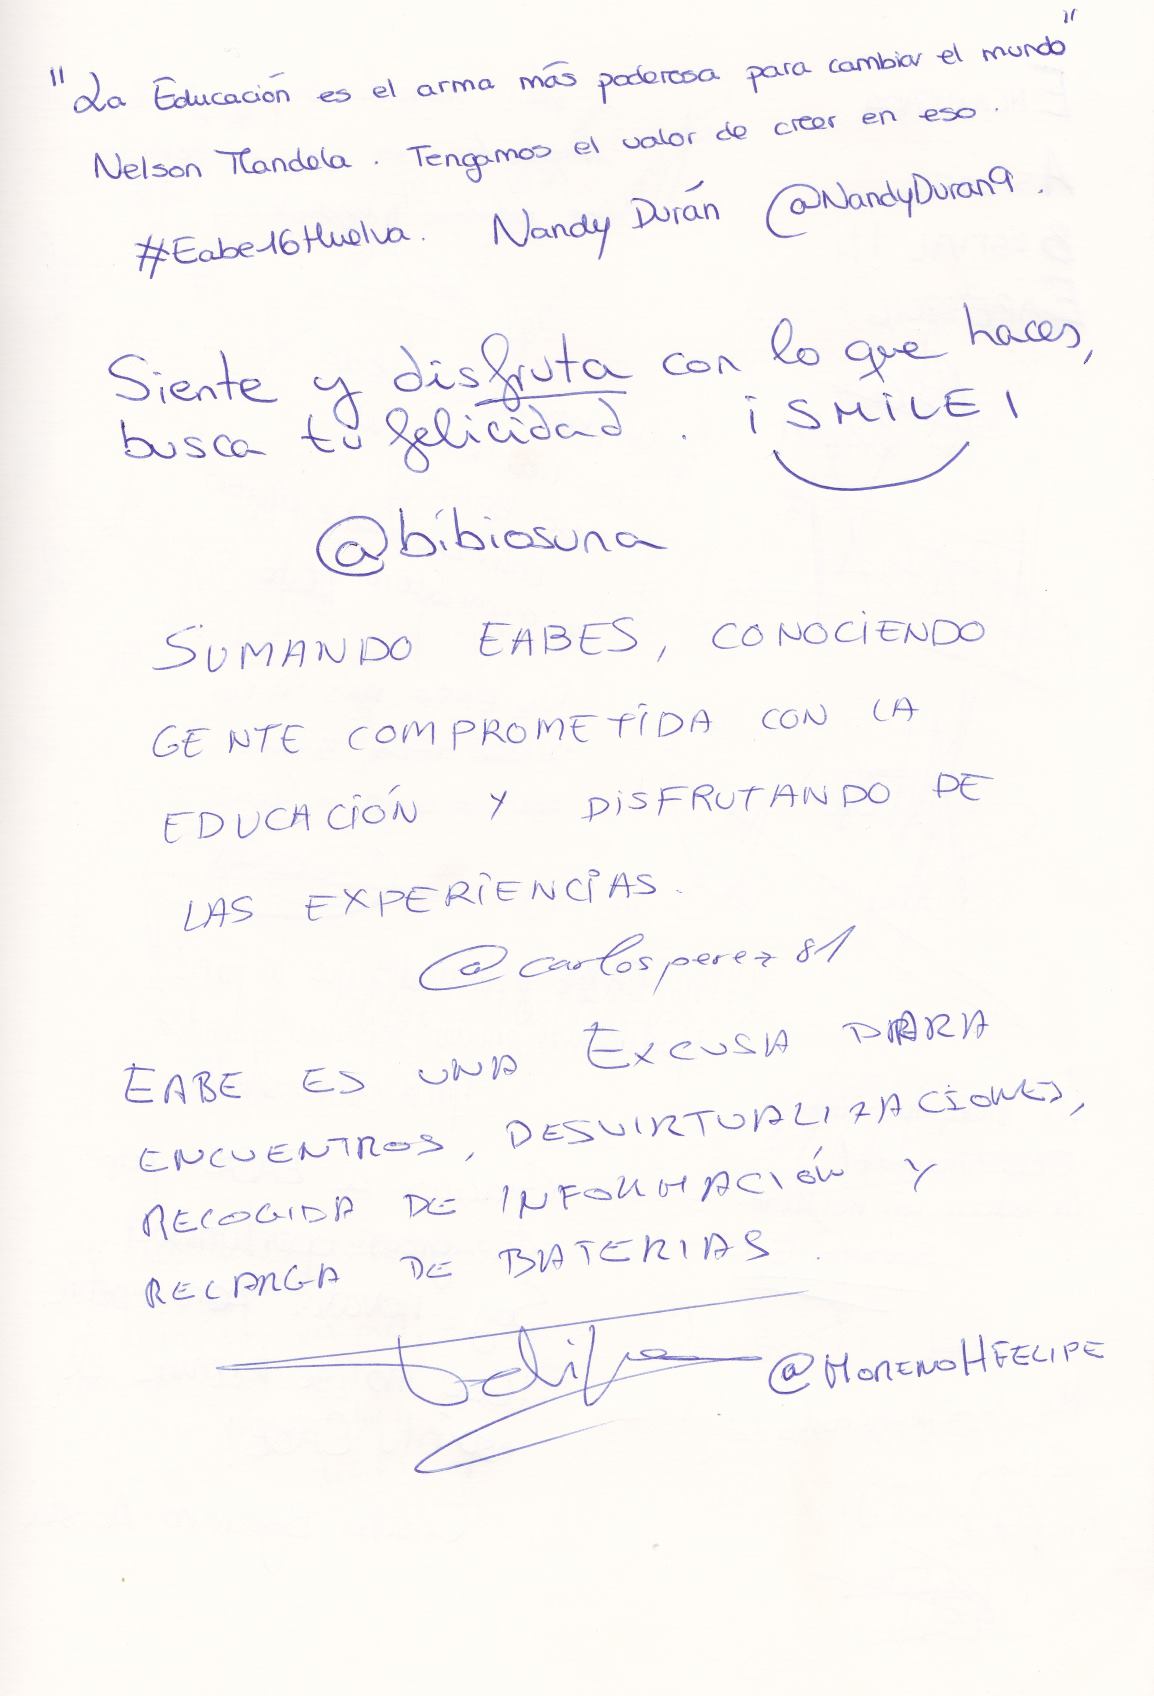 "La Educación es el arma más poderosa para cambiar el mundo"
Nelson Mandela. Tengamos el valor de creer en eso.
#Eabe16Huelva. Nandy Durán @NandyDuran9.
Siente y disfruta con lo que haces,
busca tu felicidad. ¡SMILE!
@bibiosuna
SUMANDO EABES, CONOCIENDO
GENTE COMPROMETIDA CON LA
EDUCACIÓN Y DISFRUTANDO DE
LAS EXPERIENCIAS.
@carlosperez81
EABE ES UNA EXCUSA PARA
ENCUENTROS, DESVIRTUALIZACIONES,
RECOGIDA DE INFORMACIÓN Y
RECARGA DE BATERIAS.
Felipe @MORENOHFELIPE